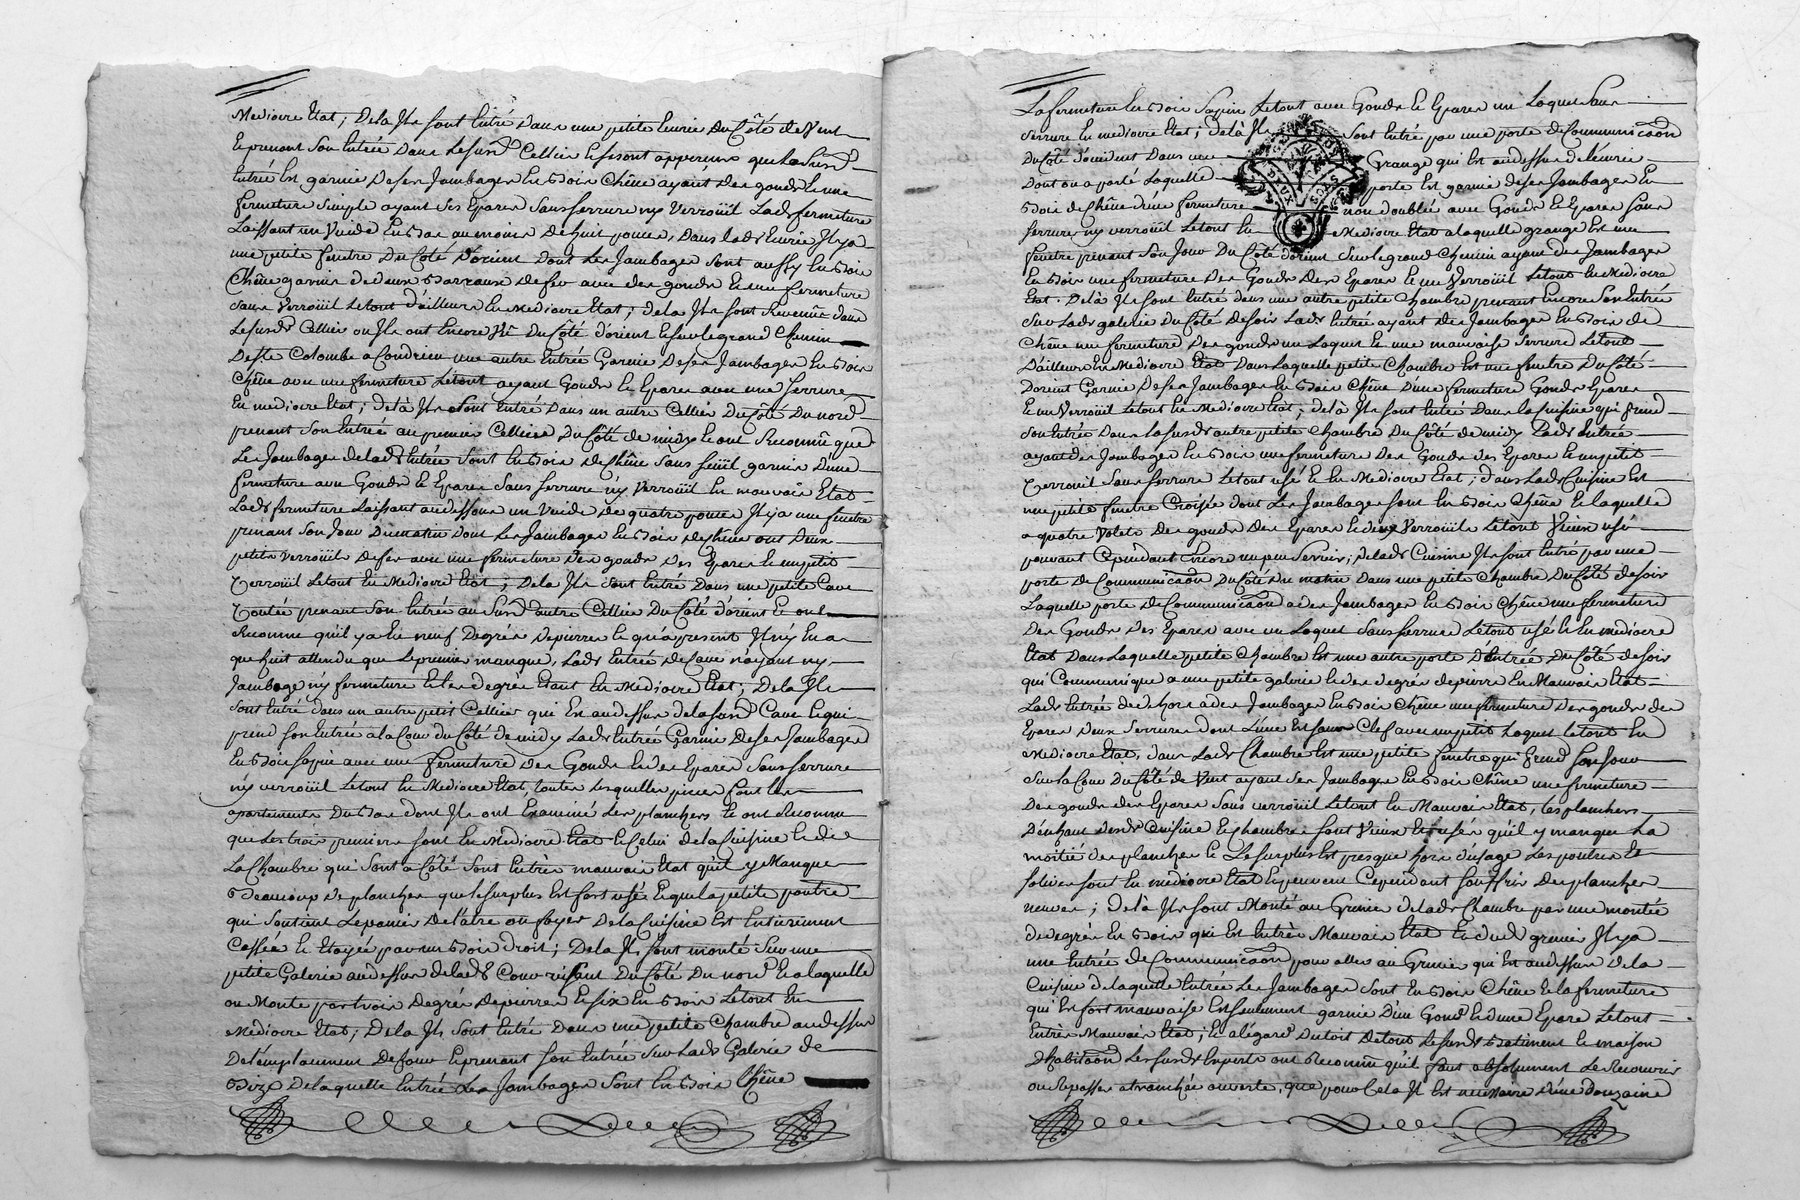 Mediocre Etat; De la Ils sont Entré Dans une petite Ecurie Du Côté de Vent
Et prenant son Entrée Dans Le susd Cellier Et se sont apperçus que La Susd
Entrée Est garnie De ses Jambages En Bois Chêne ayant Des gonds Et une
fermeture simple ayant Ses Epares Sans serrure ny Verroüil Lad fermeture
Laissant un Vuide En Bas au moins De huit pouces, Dans lad Ecurie Il y a
une petite fenetre Du Côté D'orient Dont Les Jambages Sont aussy En Bois
Chêne garnie De deux Barreaux de fer avec des gonds Et une fermeture
Sans Verroüil Le tout d'ailleurs En Mediocre Etat; de la Ils sont Revenus dans
Le susd Cellier ou Ils ont Encore Vû Du Côté d'orient Et sur le grand Chemin
De Ste Colombe a Condrieu une autre Entrée Garnie De ses Jambages En Bois
Chêne avec une fermeture Le tout ayant Gonds Et Epares avec une Serrure
En mediocre Etat; de là Ils Sont Entré Dans un autre Cellier Du Côté Du nord
prenant Son Entrée au premier Cellier Du Côté de midy Et ont Reconnu que
Les Jambages de lad Entrée Sont En Bois de Chêne Sans seüil garnie D'une
fermeture avec Gonds Et Epares Sans Serrure ny Verroüil En mauvais Etat
Lad fermeture Laissant au dessous un Vuide de quatre pouces Il y a une fenetre
prenant Son Jour Du matin Dont Les Jambages En Bois de Chêne ont Deux
petits Verroüils De fer avec une fermeture Des gonds Des Epares Et un petit
Verroüil Le tout En Mediocre Etat; De la Ils Sont Entré Dans une petite Cave
Voutée prenant Son Entrée au Susd autre Cellier Du Côté d'orient Et ont
Reconnu qu'il y a Eu neuf Degrés De pierre Et qu'apresent Il n'y En a
que huit attendu que Le premier manque, Lad Entrée De Cave n'ayant ny
Jambage ny fermeture Et les degrés Etant En Mediocre Etat; De la Ils
Sont Entré dans un autre petit Cellier qui Est au dessus de la susd Cave Et qui
prend son Entrée a la Cour du Côté de midy Lad Entrée Garnie De ses Jambages
En Bois sapin avec une fermeture Des Gonds Et des Epares Sans Serrure
ny verroüil Le tout En Mediocre Etat, toutes Lesquelles pieces sont Les
apartements Du Bas dont Ils ont Examiné Les planchers Et ont Reconnu
que Les trois premiers sont En Médiocre Etat Et Celui de la Cuisine Et de
La Chambre qui Sont a Côté Sont En très mauvais Etat qu'il y Manque
Beaucoup De planches que Le surplus Est fort usé Et que la petite poutre
qui Soutient Le panier De l'atre ou foyer De la Cuisine Est Entierement
Cassée Et Etayée par un Bois Droit; De la Ils sont monté Sur une
petite Galerie au dessus de lad Cour visant Du Côté Du nord Et a laquelle
on Monte par trois Degrés De pierre Et six En Bois Le tout En
Médiocre Etat; De la Ils Sont Entré Dans une petite Chambre au dessus
De l'emplacement De four Et prenant son Entrée Sur Lad Galerie de
Bize De laquelle Entrée Les Jambages Sont En Bois Chêne
La fermeture En Bois Sapin Le tout avec Gonds Et Epares un Loquet Sans
Serrure En mediocre Etat; de là Ils Sont Entré par une porte de Communicaon
Du Côté d'orient Dans une Grange qui Est au dessus de l'Ecurie
Dont on a parlé Laquelle porte Est garnie de ses Jambages En
Bois de Chêne d'une fermeture non doublée avec Gonds Et Epares sans
Serrure ny verroüil Le tout En Mediocre Etat a laquelle grange Est une
fenêtre prenant Son Jour Du Côté d'orient Sur le grand Chemin ayant des Jambages
En Bois une fermeture Des Gonds Des Epares Et un Verroüil Le tout En Mediocre
Etat. De là Ils sont Entré dans une autre petite Chambre prenant Encore Son Entrée
Sur Lad galerie Du Côté De soir Lad Entrée ayant des Jambages En Bois de
Chêne une fermeture Des gonds un Loquet Et une mauvaise Serrure Le tout
D'ailleurs En Mediocre Etat Dans Laquelle petite Chambre Est une fenêtre Du Côté
D'orient Garnie De ses Jambages En Bois Chêne D'une fermeture Gonds Epares
Et un Verroüil Le tout En Mediocre Etat; de là Ils sont Entré Dans la Cuisine qui prend
Son Entrée Dans la susd autre petite Chambre Du Côté de midy Lad Entrée
ayant des Jambages En Bois une fermeture Des Gonds Des Epares Et un petit
Verroüil Sans serrure Le tout usé Et En Mediocre Etat; dans Lad Cuisine Est
une petite fenetre Croisée dont Les Jambages Sont En Bois Chêne Et laquelle
a quatre Volets Des gonds Des Epares Et deux Verroüils Le tout Vieux usé
pouvant Cependant Encore un peu Servir; de lad Cuisine Ils sont Entré par une
porte De Communicaon Du Côté Du matin Dans une petite Chambre Du Côté de soir
Laquelle porte De Communicaon a des Jambages En Bois Chêne une fermeture
Des Gonds Des Epares avec un Loquet Sans serrure Le tout usé Et En mediocre
Etat Dans Laquelle petite Chambre Est une autre porte D'Entrée Du Côté de soir
qui Communique a une petite galerie Et des degrés de pierre En Mauvais Etat
Lad Entrée de dehors a des Jambages En Bois Chêne une fermeture Des gonds des
Epares Deux Serrures Dont L'une Est sans Clef avec un petit Loquet Le tout En
Mediocre Etat, dans Lad Chambre Est une petite fenêtre qui prend son Jour
Sur la Cour Du Côté de Vent ayant Ses Jambages En Bois Chêne une fermeture
Des gonds des Epares Sans verroüil Le tout En Mauvais Etat, Les planchers
D'Enhaut Desd Cuisine Et Chambres sont Vieux Et usés qu'il y manque La
moitié Des planches Et Le surplus Est presque hors d'usage Les poutres Et
solives sont En mediocre Etat Et peuvent Cependant souffrir Des planches
neuves; de là Ils sont Monté au Grenier de lad Chambre par une montée
de degrés En Bois qui Est En très Mauvais Etat Et dud grenier Il y a
une Entrée de Communicaon pour aller au Grenier qui Est au dessus de la
Cuisine de laquelle Entrée Les Jambages Sont En Bois Chêne Et la fermeture
qui Est fort mauvaise Est seulement garnie D'un Gond Et d'une Epare Le tout
En très Mauvais Etat; Et a l'égard Du toit De tout Le susd Batiment Et maison
D'habitaon Les susds Experts ont Reconnu qu'il faut absolument Le Recouvrir
ou Repasser a tranchée ouverte, que pour Cela Il Est necessaire d'une Douzaine